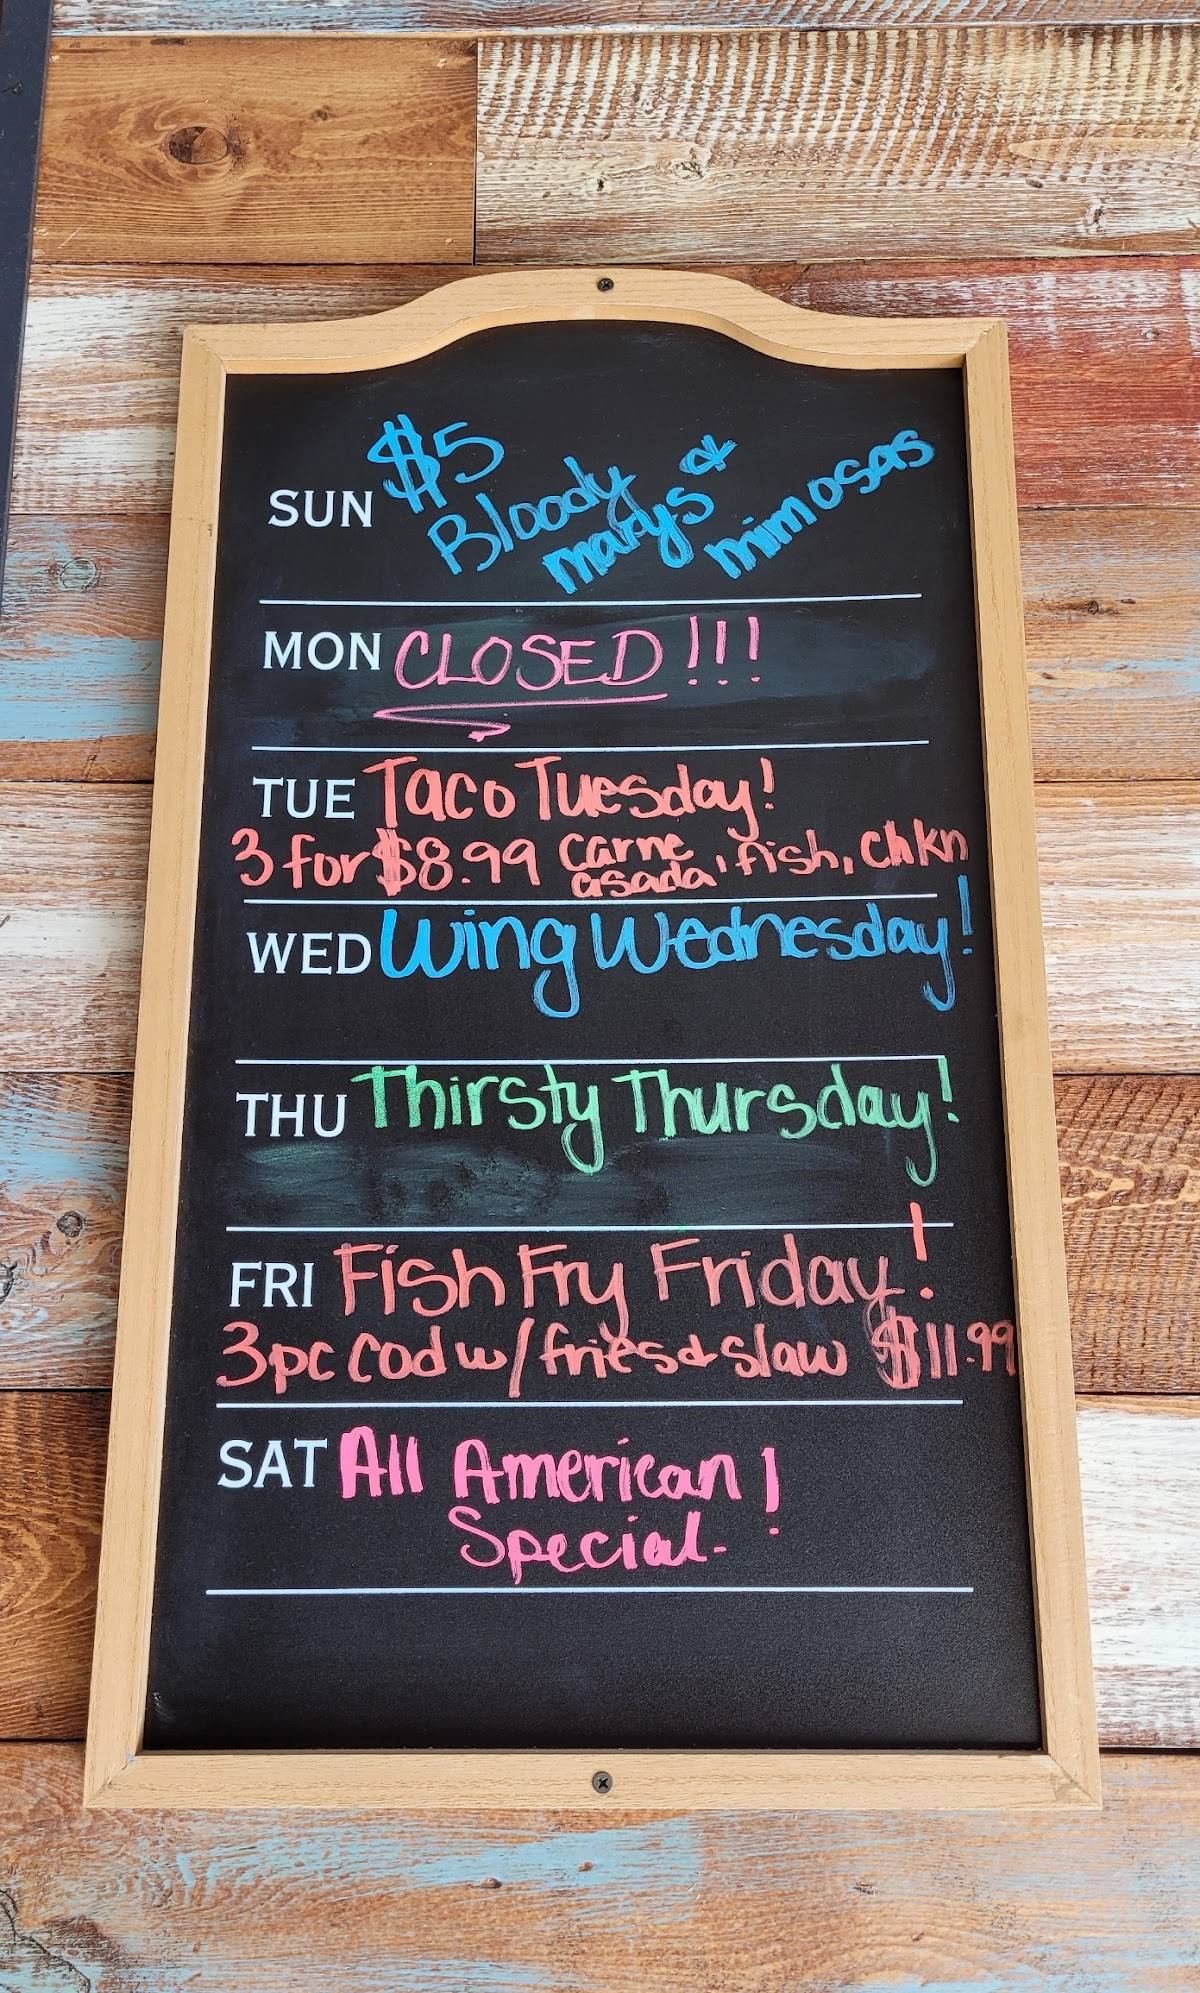 SUN $5 Bloody marys & mimosas
MON CLOSED!!!
TUE Taco Tuesday!
3 for $8.99 carne asada, fish, chkn
WED Wing Wednesday!
THU Thirsty Thursday!
FRI Fish Fry Friday!
3pc cod w/ fries & slaw $11.99
SAT All American!
Special.